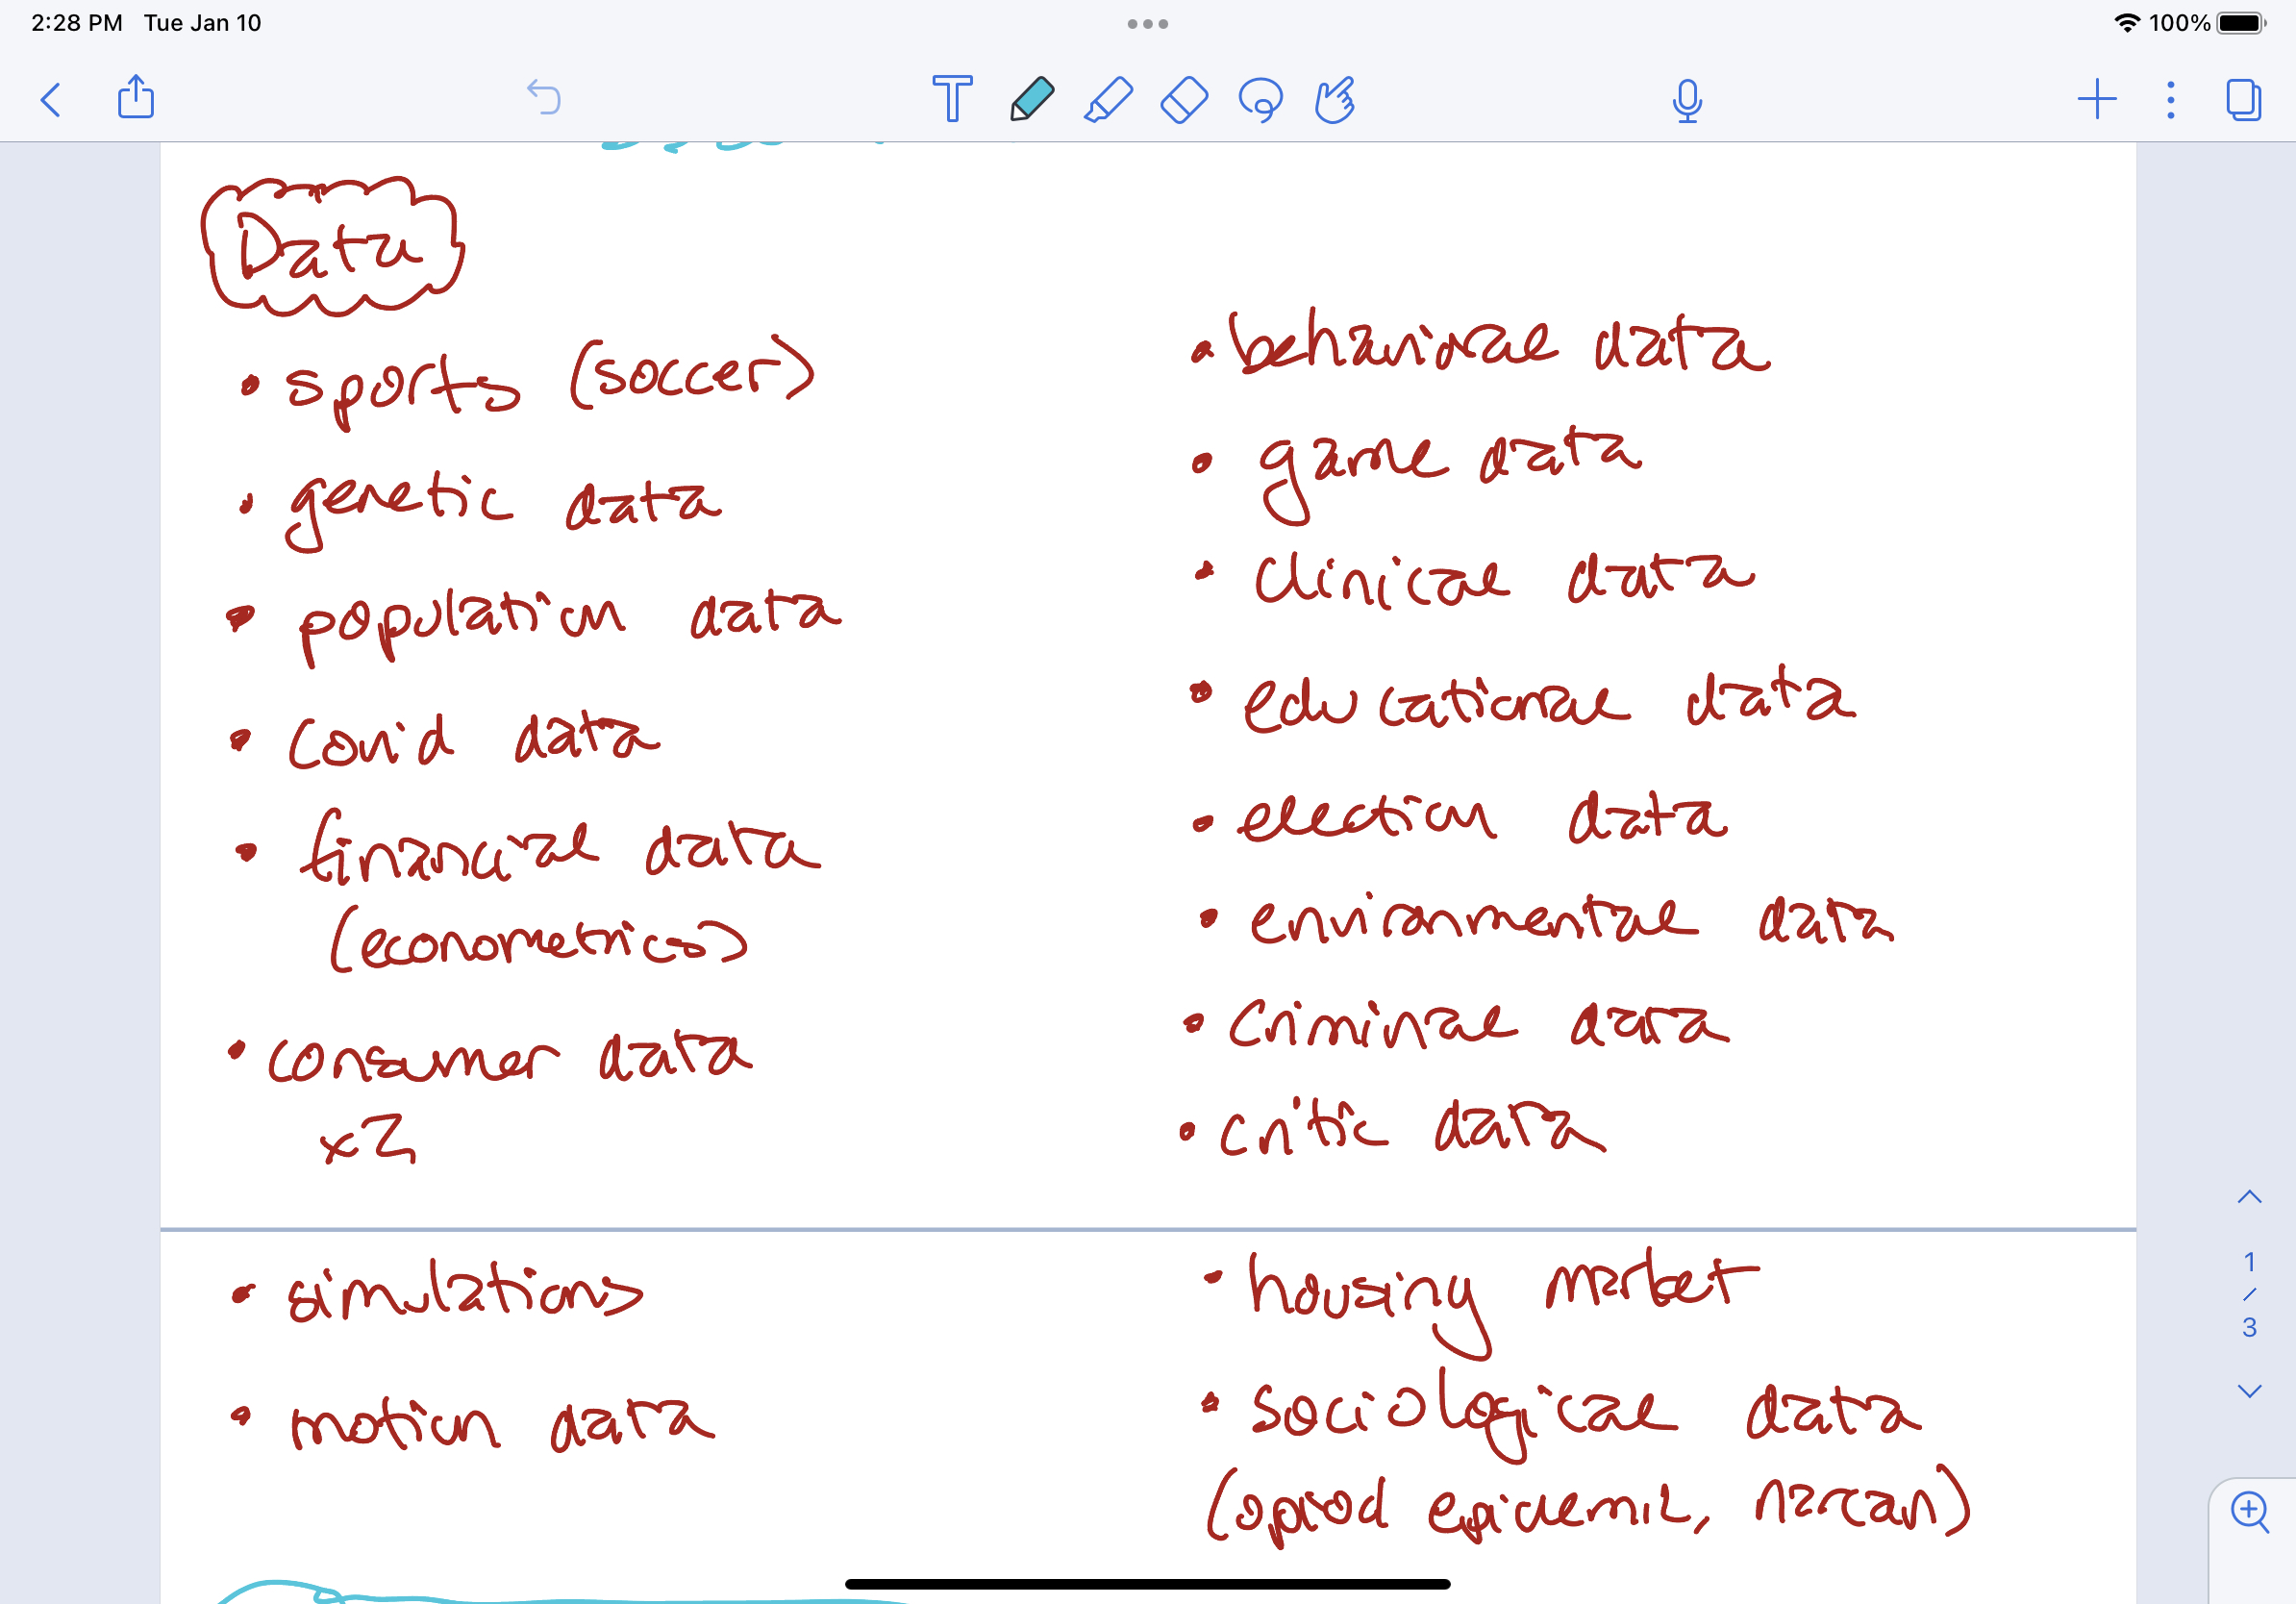 2:28 PM Tue Jan 10
100%
T
Data
• sports (soccer)
• genetic data
• population data
• covid data
• financial data
(econometrics)
• consumer data
x2
• behavioral data
• game data
• clinical data
• educational data
• election data
• environmental data
• criminal data
• critic data
• simulations
• motion data
• housing market
• sociological data
(opiod epidemic, narcan)
1
/
3